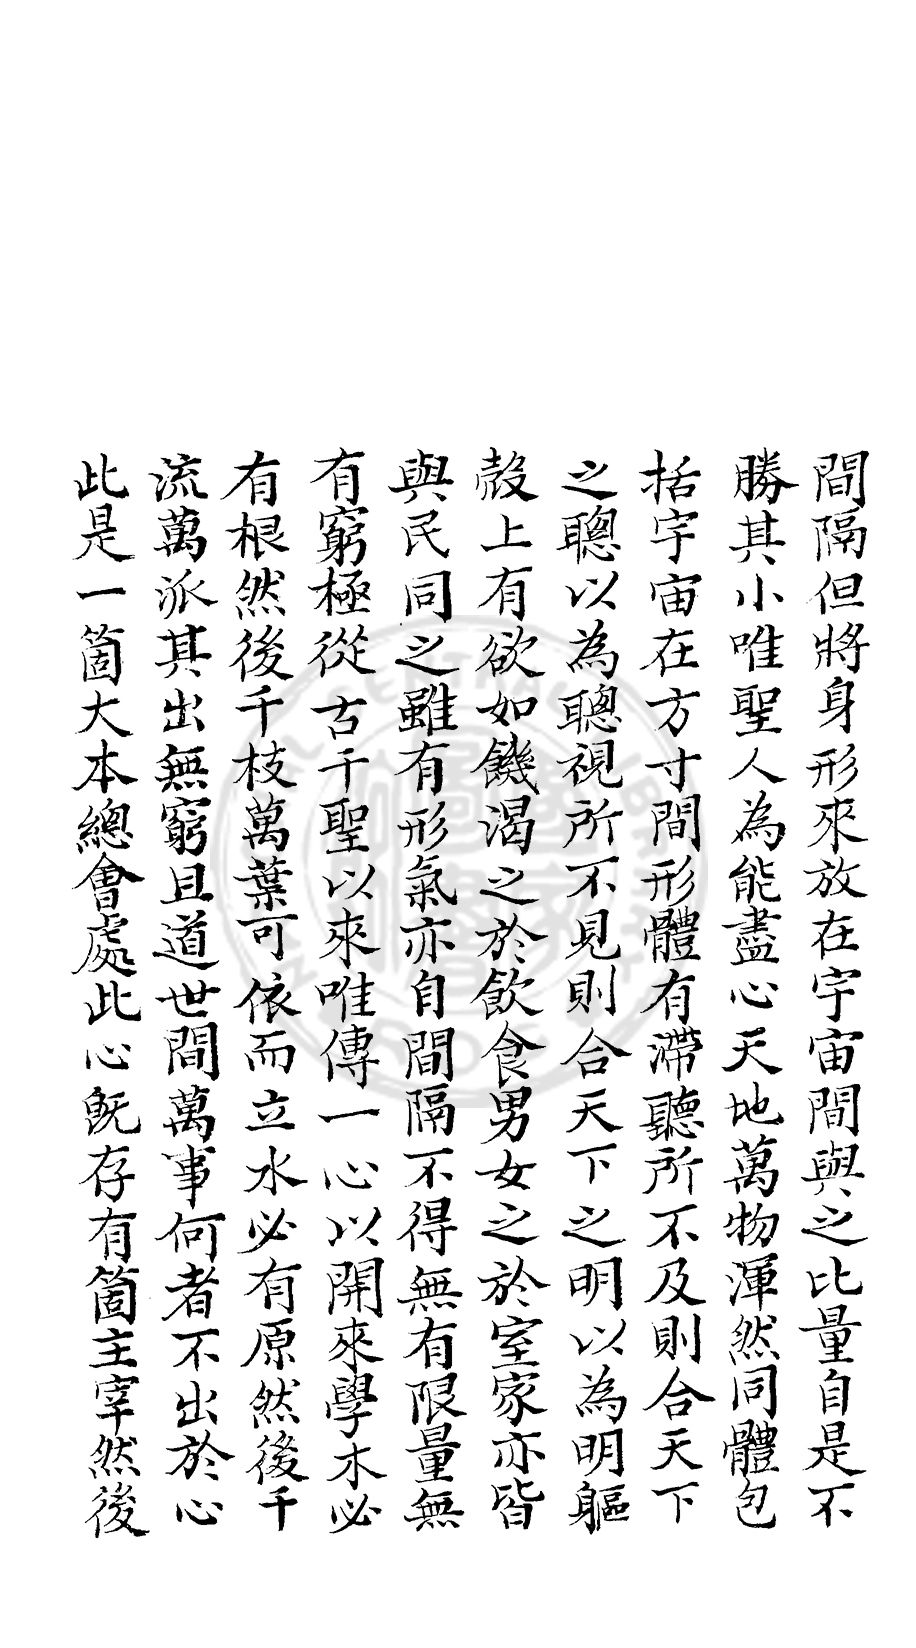 間隔但將身形來放在宇宙間與之比量自是不
勝其小唯聖人為能盡心天地萬物渾然同體包
括宇宙在方寸間形體有滯聽所不及則合天下
之聰以為聰視所不見則合天下之明以為明軀
殼上有欲如饑渴之於飲食男女之於室家亦皆
與民同之雖有形氣亦自間隔不得無有限量無
有窮極從古千聖以來唯傳一心以開來學木必
有根然後千枝萬葉可依而立水必有原然後千
流萬派其出無窮且道世間萬事何者不出於心
此是一箇大本總會處此心既存有箇主宰然後